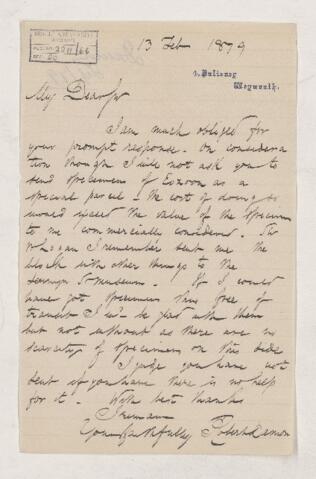 13 Feb 1879
4, Pulteney
Weymouth.
My Dear Sir
I am much obliged for
your prompt response. On considera
tion though I will not ask you to
send specimens of Eozoon as a
special parcel - the cost of doing so
would exceed the value of the specimen
to me commercially considered. Sir
W Logan I remember sent me the
block with other things to the
Museum. If I could
have got specimens thus free of
transit I wd be glad with them
but not without as there are no
scarcity of specimens on this side
I judge you have not
sent if you have there is no help
for it - With best thanks
I remain
Yours faithfully Robert Damon